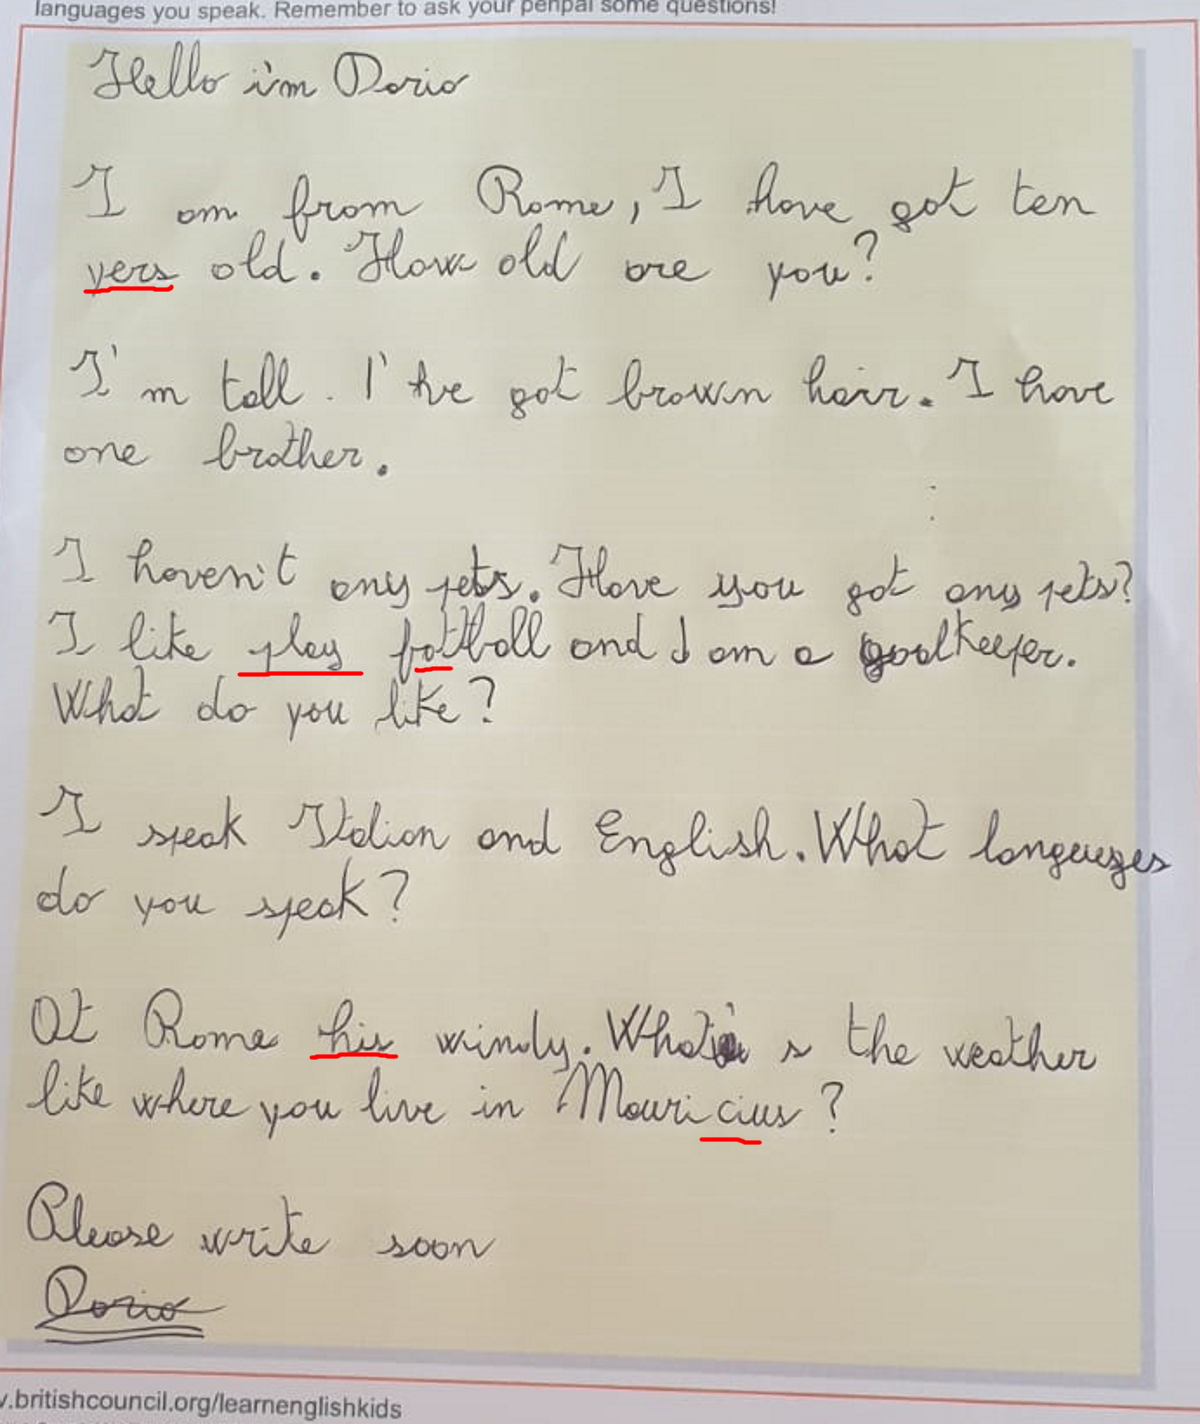 languages you speak. Remember to ask your penpal some questions!
Hello i'm Dario
I am from Rome, I have got ten
yers old. How old are you?
I'm tall. I'he got brown hair. I have
one brother.
I haven't any pets. Have you got any pets?
I like play fotball and I am a goalkeeper.
What do you like?
I speak Italian and English. What languages
do you speak?
At Rome his windy. What's the weather
like where you live in Mauricius?
Please write soon
Dario
v.britishcouncil.org/learnenglishkids